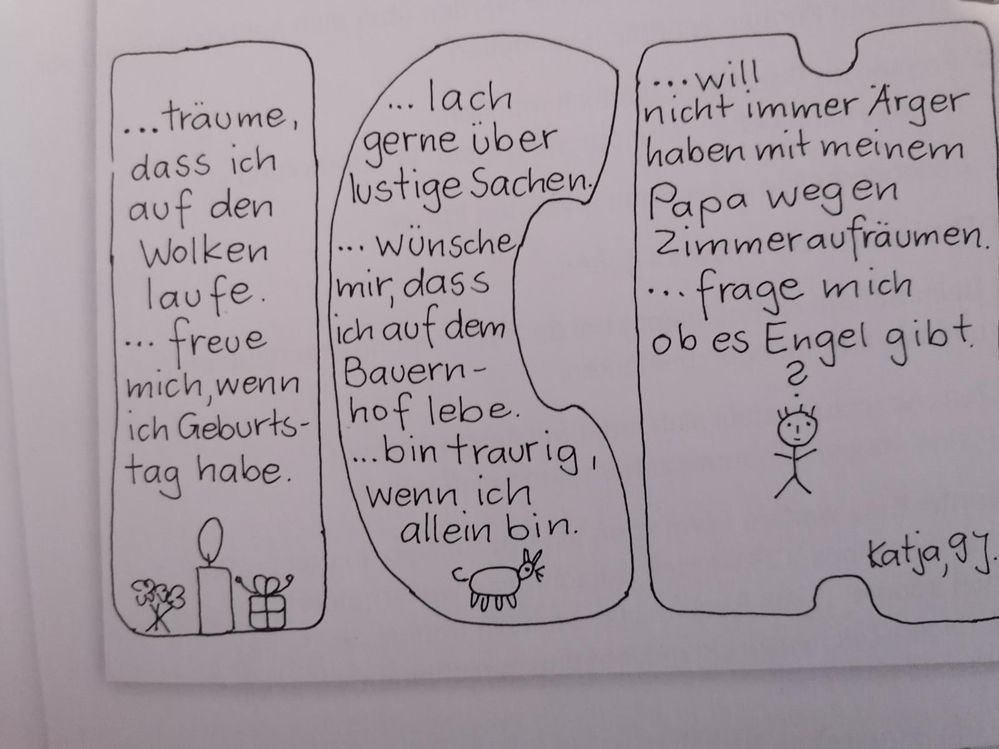 ...träume,
dass ich
auf den
Wolken
laufe.
... freue
mich, wenn
ich Geburts-
tag habe.
... lach
gerne über
lustige Sachen.
... wünsche
mir, dass
ich auf dem
Bauern-
hof lebe.
...bin traurig,
wenn ich
allein bin.
...will
nicht immer Ärger
haben mit meinem
Papa wegen
Zimmeraufräumen.
...frage mich
ob es Engel gibt.
?
Katja, 9J.